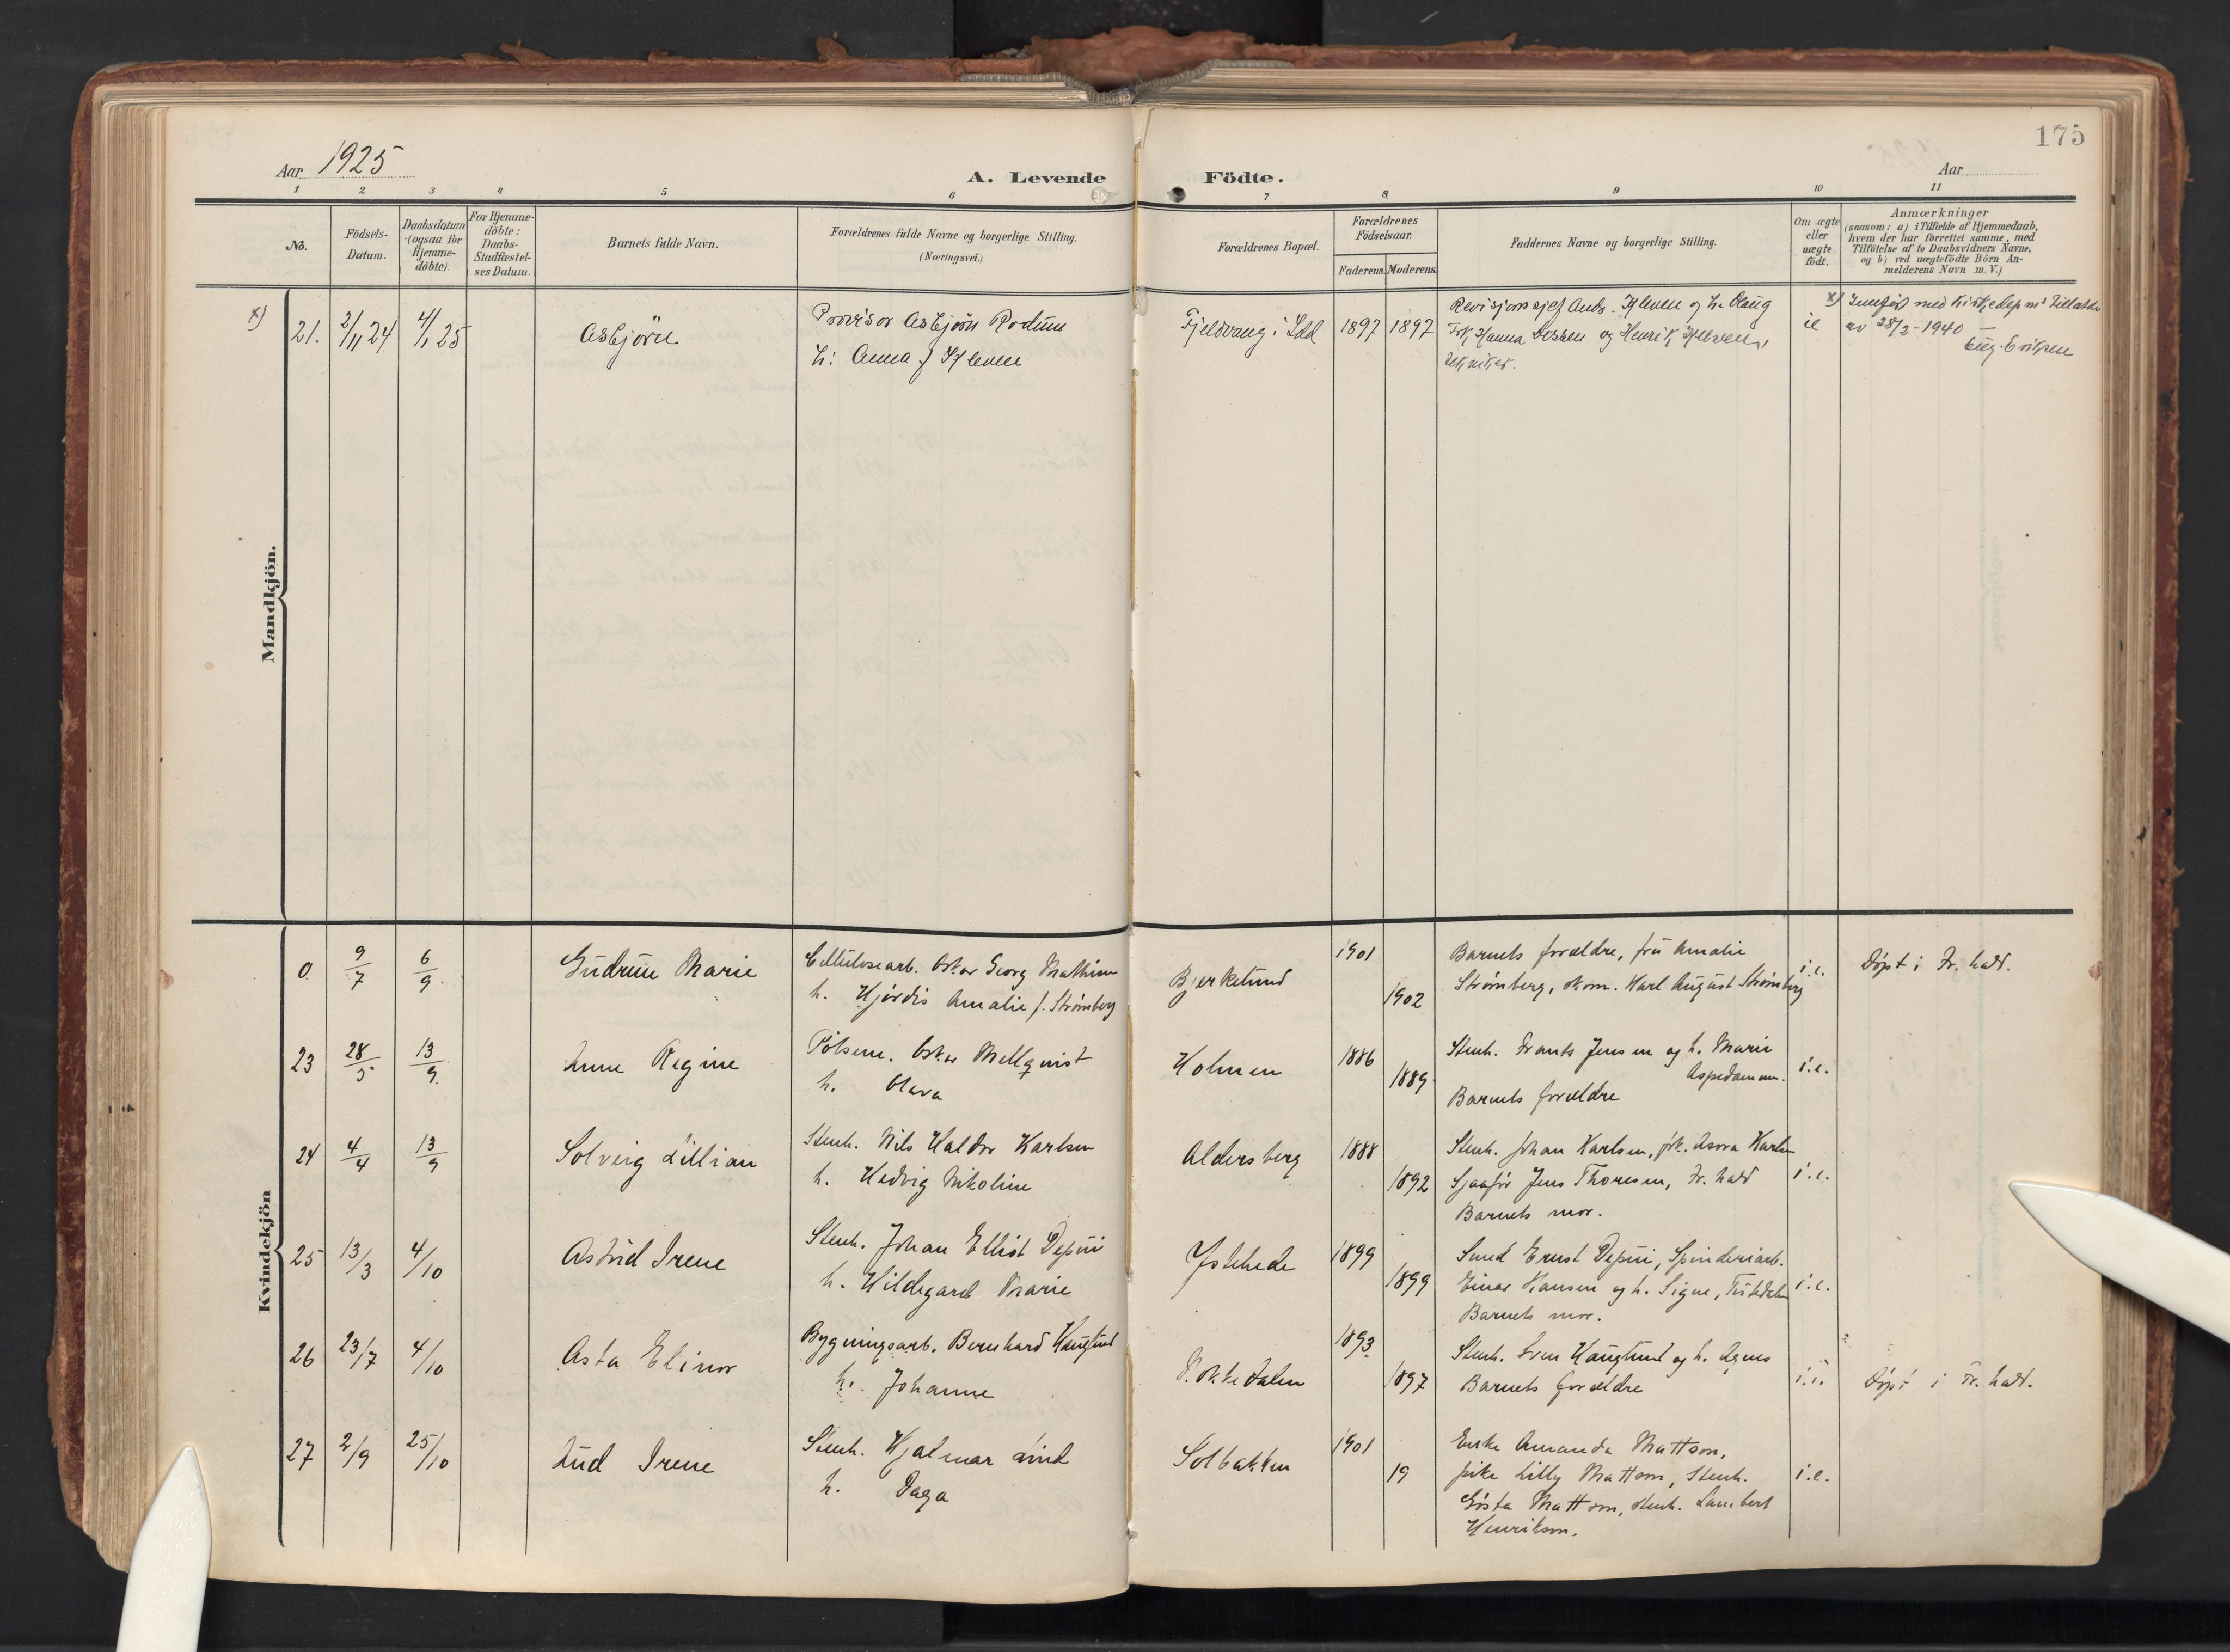 175
Aar 1925
A. Levende Födte.
Aar
1 2 3 4 5 6 7 8 9 10 11
No.
Födsels-
Datum.
Daabsdatum
(ogsaa for
Hjemme-
döbte).
For Hjemme-
döbte:
Daabs-
Stadfæstel-
ses Datum.
Barnets fulde Navn.
Forældrenes fulde Navne og borgerlige Stilling.
(Næringsvei.)
Forældrenes Bopæl.
Forældrenes
Födselsaar.
Faderens. Moderens.
Faddernes Navne og borgerlige Stilling.
Om ægte
eller
uægte
födt.
Anmærkninger
(saasom: a) i Tilfælde af Hjemmedaab,
hvem der har forrettet samme, med
Tilföielse af to Daabsvidners Navne,
og b) ved uægtefödte Börn An-
melderens Navn m. V.)
Mandkjön.
x) 21. 2/11 24 4/1 25 Asbjörn
Provisor Asbjörn Rodum
h: Anna f. Hleven
Fjeldvang i Idd 1897 1897
Revisjonssjef Ands. Hleven og h. Olaug
Frk. Hanna og Henrik Hleven,
tekniker.
ie
x) Innført med Kirkedep ms Tillatelse
av 28/2-1940
Eug. Eriksen
Kvindekjön
0 9/7 6/9 Gudrun Marie
Cellulosearb. Oskar Georg Mathisen
h. Hjördis Amalie f. Strömberg
Bjerkelund 1901 1902
Barnets forældre, fru Amalie
Strömberg, skom. Karl August Strömberg
i.e. Döpt i Fr. hald.
23 28/5 13/9 Anne Regine
Pölsem. Oskar Mellqvist
h. Olava
Holmen 1886 1889
Stenh. Frants Jensen og h. Marie
Aspedammen.
Barnets forældre
i.e.
24 4/4 13/9 Solveig Lillian
Stenh. Nils Haldor Karlsen
h. Hedvig Nikoline
Aldersberg 1888 1892
Stenh. Johan Karlsen, frk. Asora Karlsen
Sjaafør Jens Thoresen, Fr. hald
Barnets mor.
i.e.
25 13/3 4/10 Astrid Irene
Stenh. Johan Elliot Depui
h. Hildegard Marie
Istehede 1899 1899
Smed Ernst Depui, Spinderiarb.
Einar Hansen og h. Signe, Tistedalen
Barnets mor.
i.e.
26 23/7 4/10 Asta Elinor
Bygningsarb. Bernhard Hauglund
h. Johanne
1893 1897
Stenh. Sven Hauglund og h. Agnes
Barnets forældre
Döpt i Fr. hald.
27 2/9 25/10 Aud Irene
Stenh. Hjalmar Lind
h. Daga
Solbakken 1901 19
Enke Amanda Mattson,
pike Lilly Mattson, Stenh.
Gösta Mattson, stenh. Lambert
Henrikson.
i.e.